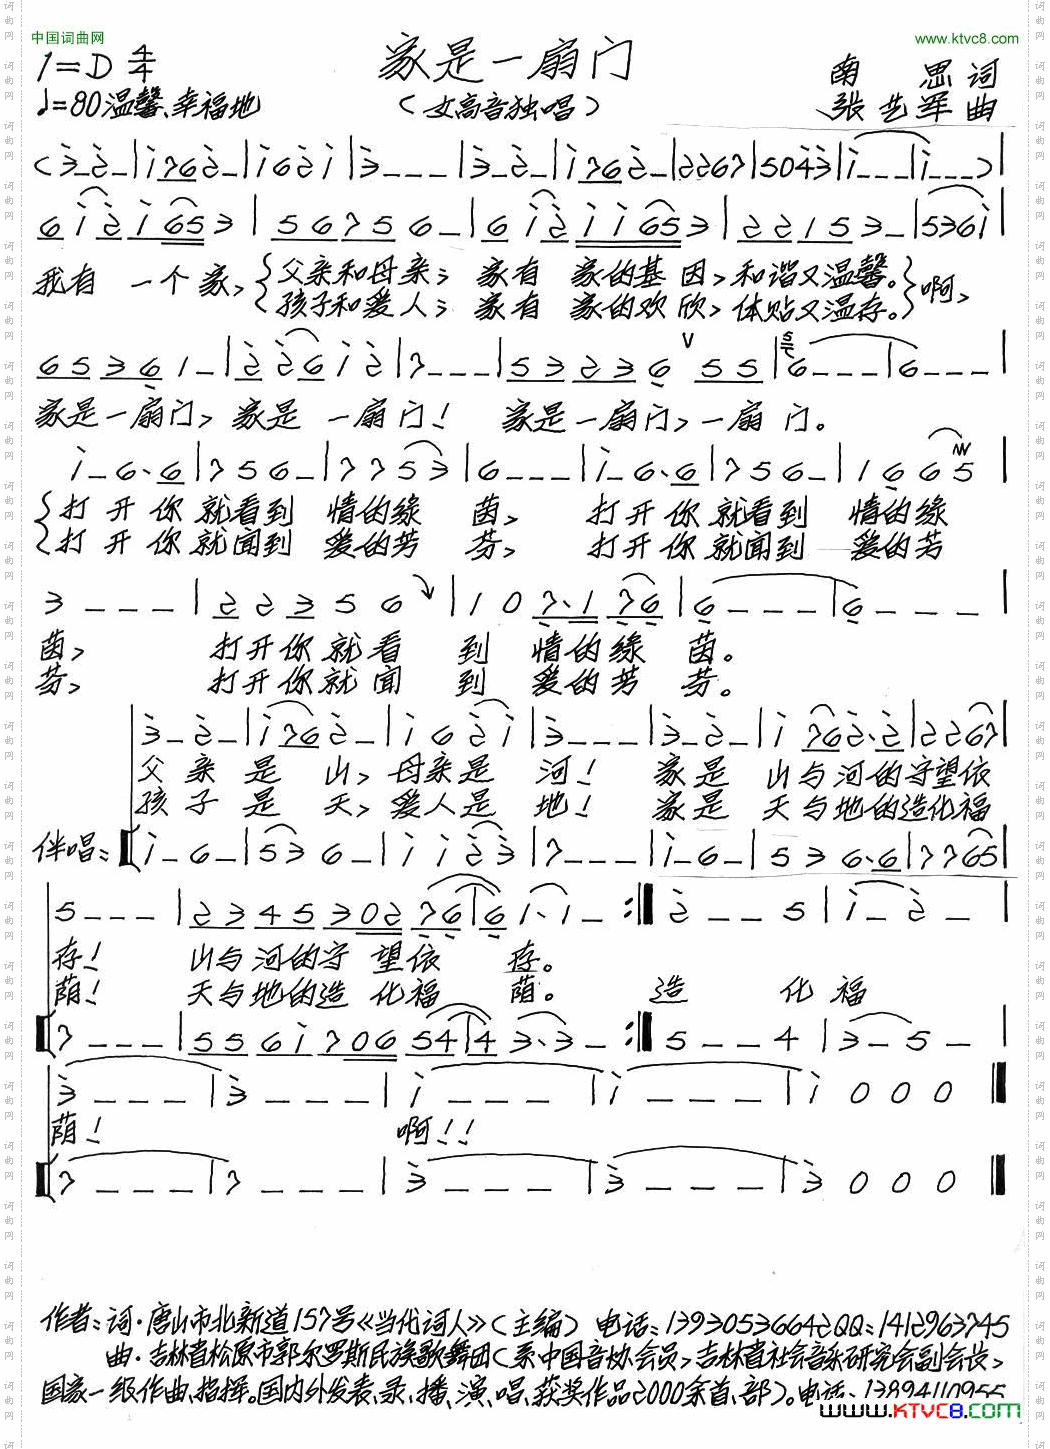 中国词曲网
www.ktvc8.com
家是一扇门
1=D 4/4
南思 词
♩=80 温馨、幸福地
（女高音独唱）
张艺军 曲
我有 一个家，{父亲和母亲； 家有 家的基因，和谐又温馨。}啊，
{孩子和爱人； 家有 家的欢欣，体贴又温存。}
家是一扇门，家是 一扇门！ 家是一扇门，一扇门。
打开你就看到 情的绿茵， 打开你就看到 情的绿
打开你就闻到 爱的芳芬， 打开你就闻到 爱的芳
茵， 打开你就看 到 情的绿茵。
芬， 打开你就闻 到 爱的芳芬。
父亲是 山，母亲是 河！ 家是 山与河的守望依
孩子是 天，爱人是 地！ 家是 天与地的造化福
伴唱：
存！ 山与河的守望依 存。
荫！ 天与地的造化福 荫。 造 化福
荫！ 啊！！
作者：词·唐山市北新道157号《当代词人》（主编） 电话：13930536642QQ：1412963745
曲·吉林省松原市郭尔罗斯民族歌舞团（系中国音协会员，吉林省社会音乐研究会副会长，
国家一级作曲、指挥。国内外发表、录、播、演、唱、获奖作品2000余首、部）。电话·
www.KTVC8.com